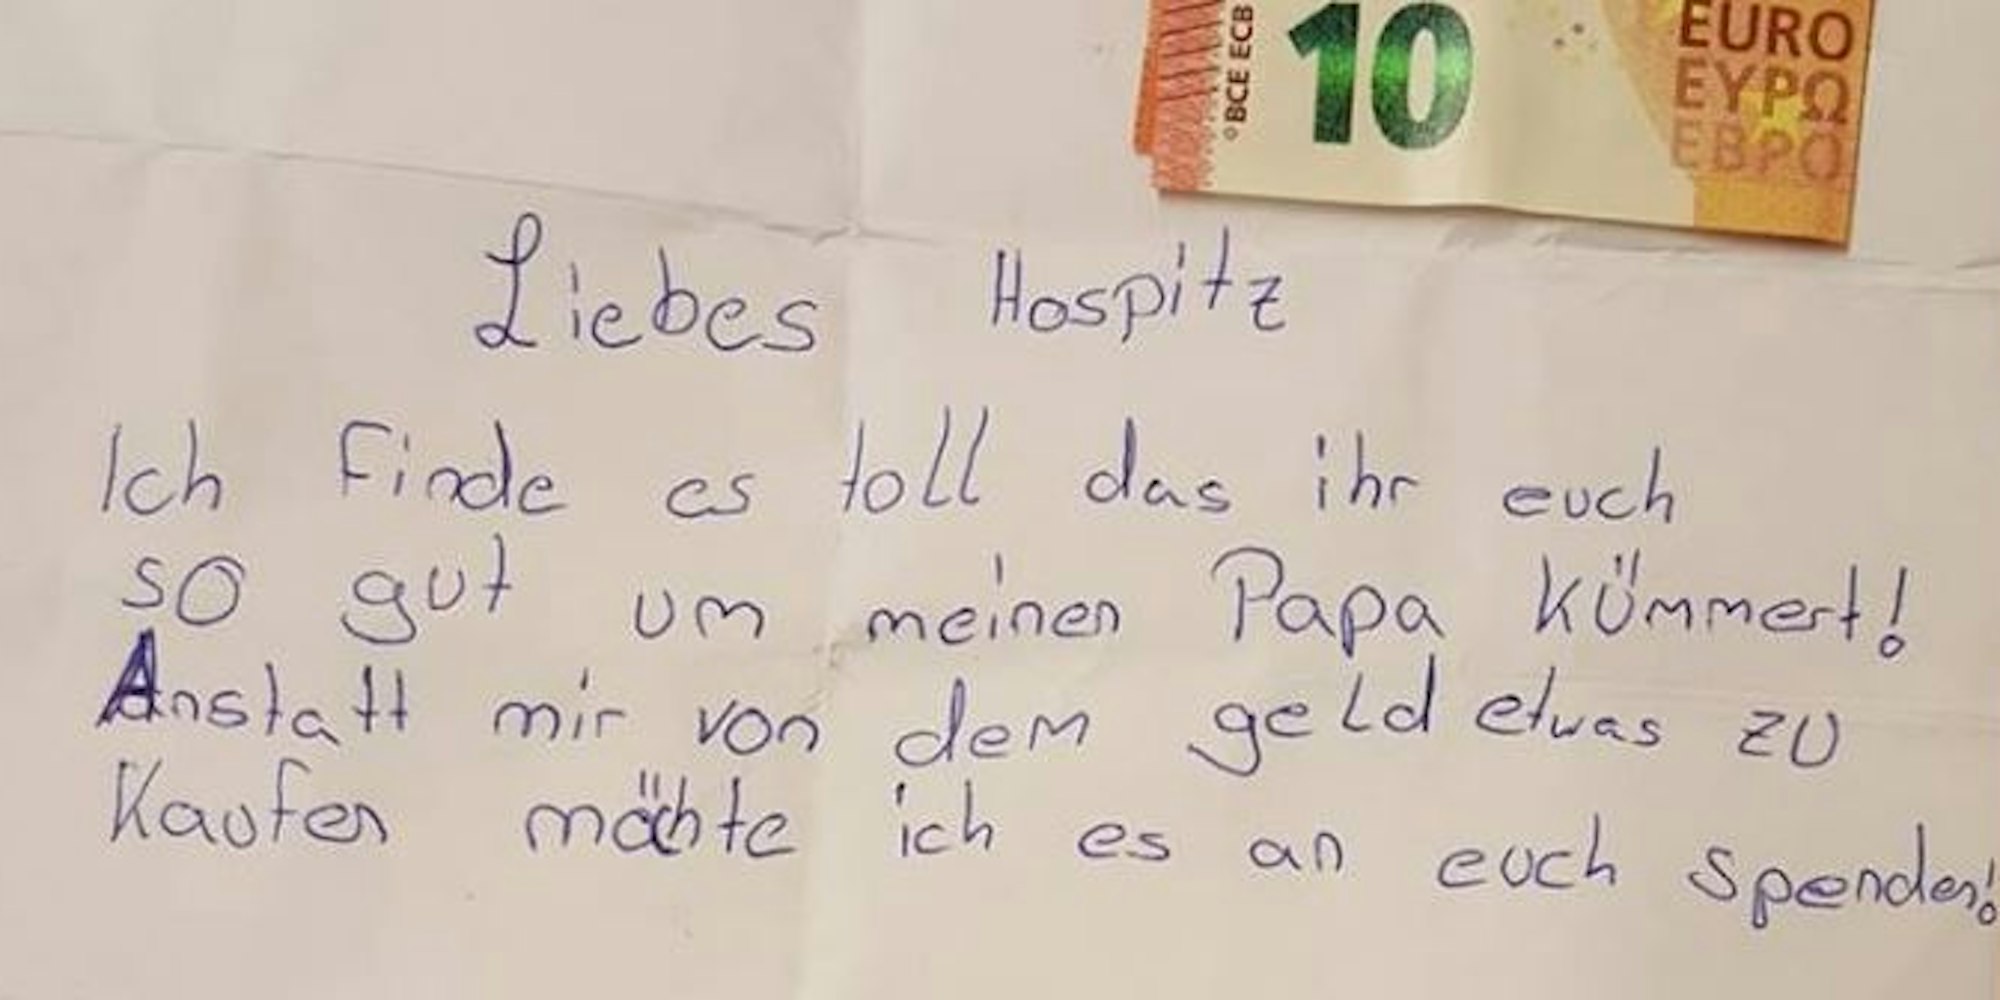 BCE ECB
10
EURO
ΕΥΡΩ
ЕВРО
Liebes Hospitz
Ich finde es toll das ihr euch
so gut um meinen Papa kümmert!
Anstatt mir von dem geld etwas zu
Kaufen möchte ich es an euch spenden!